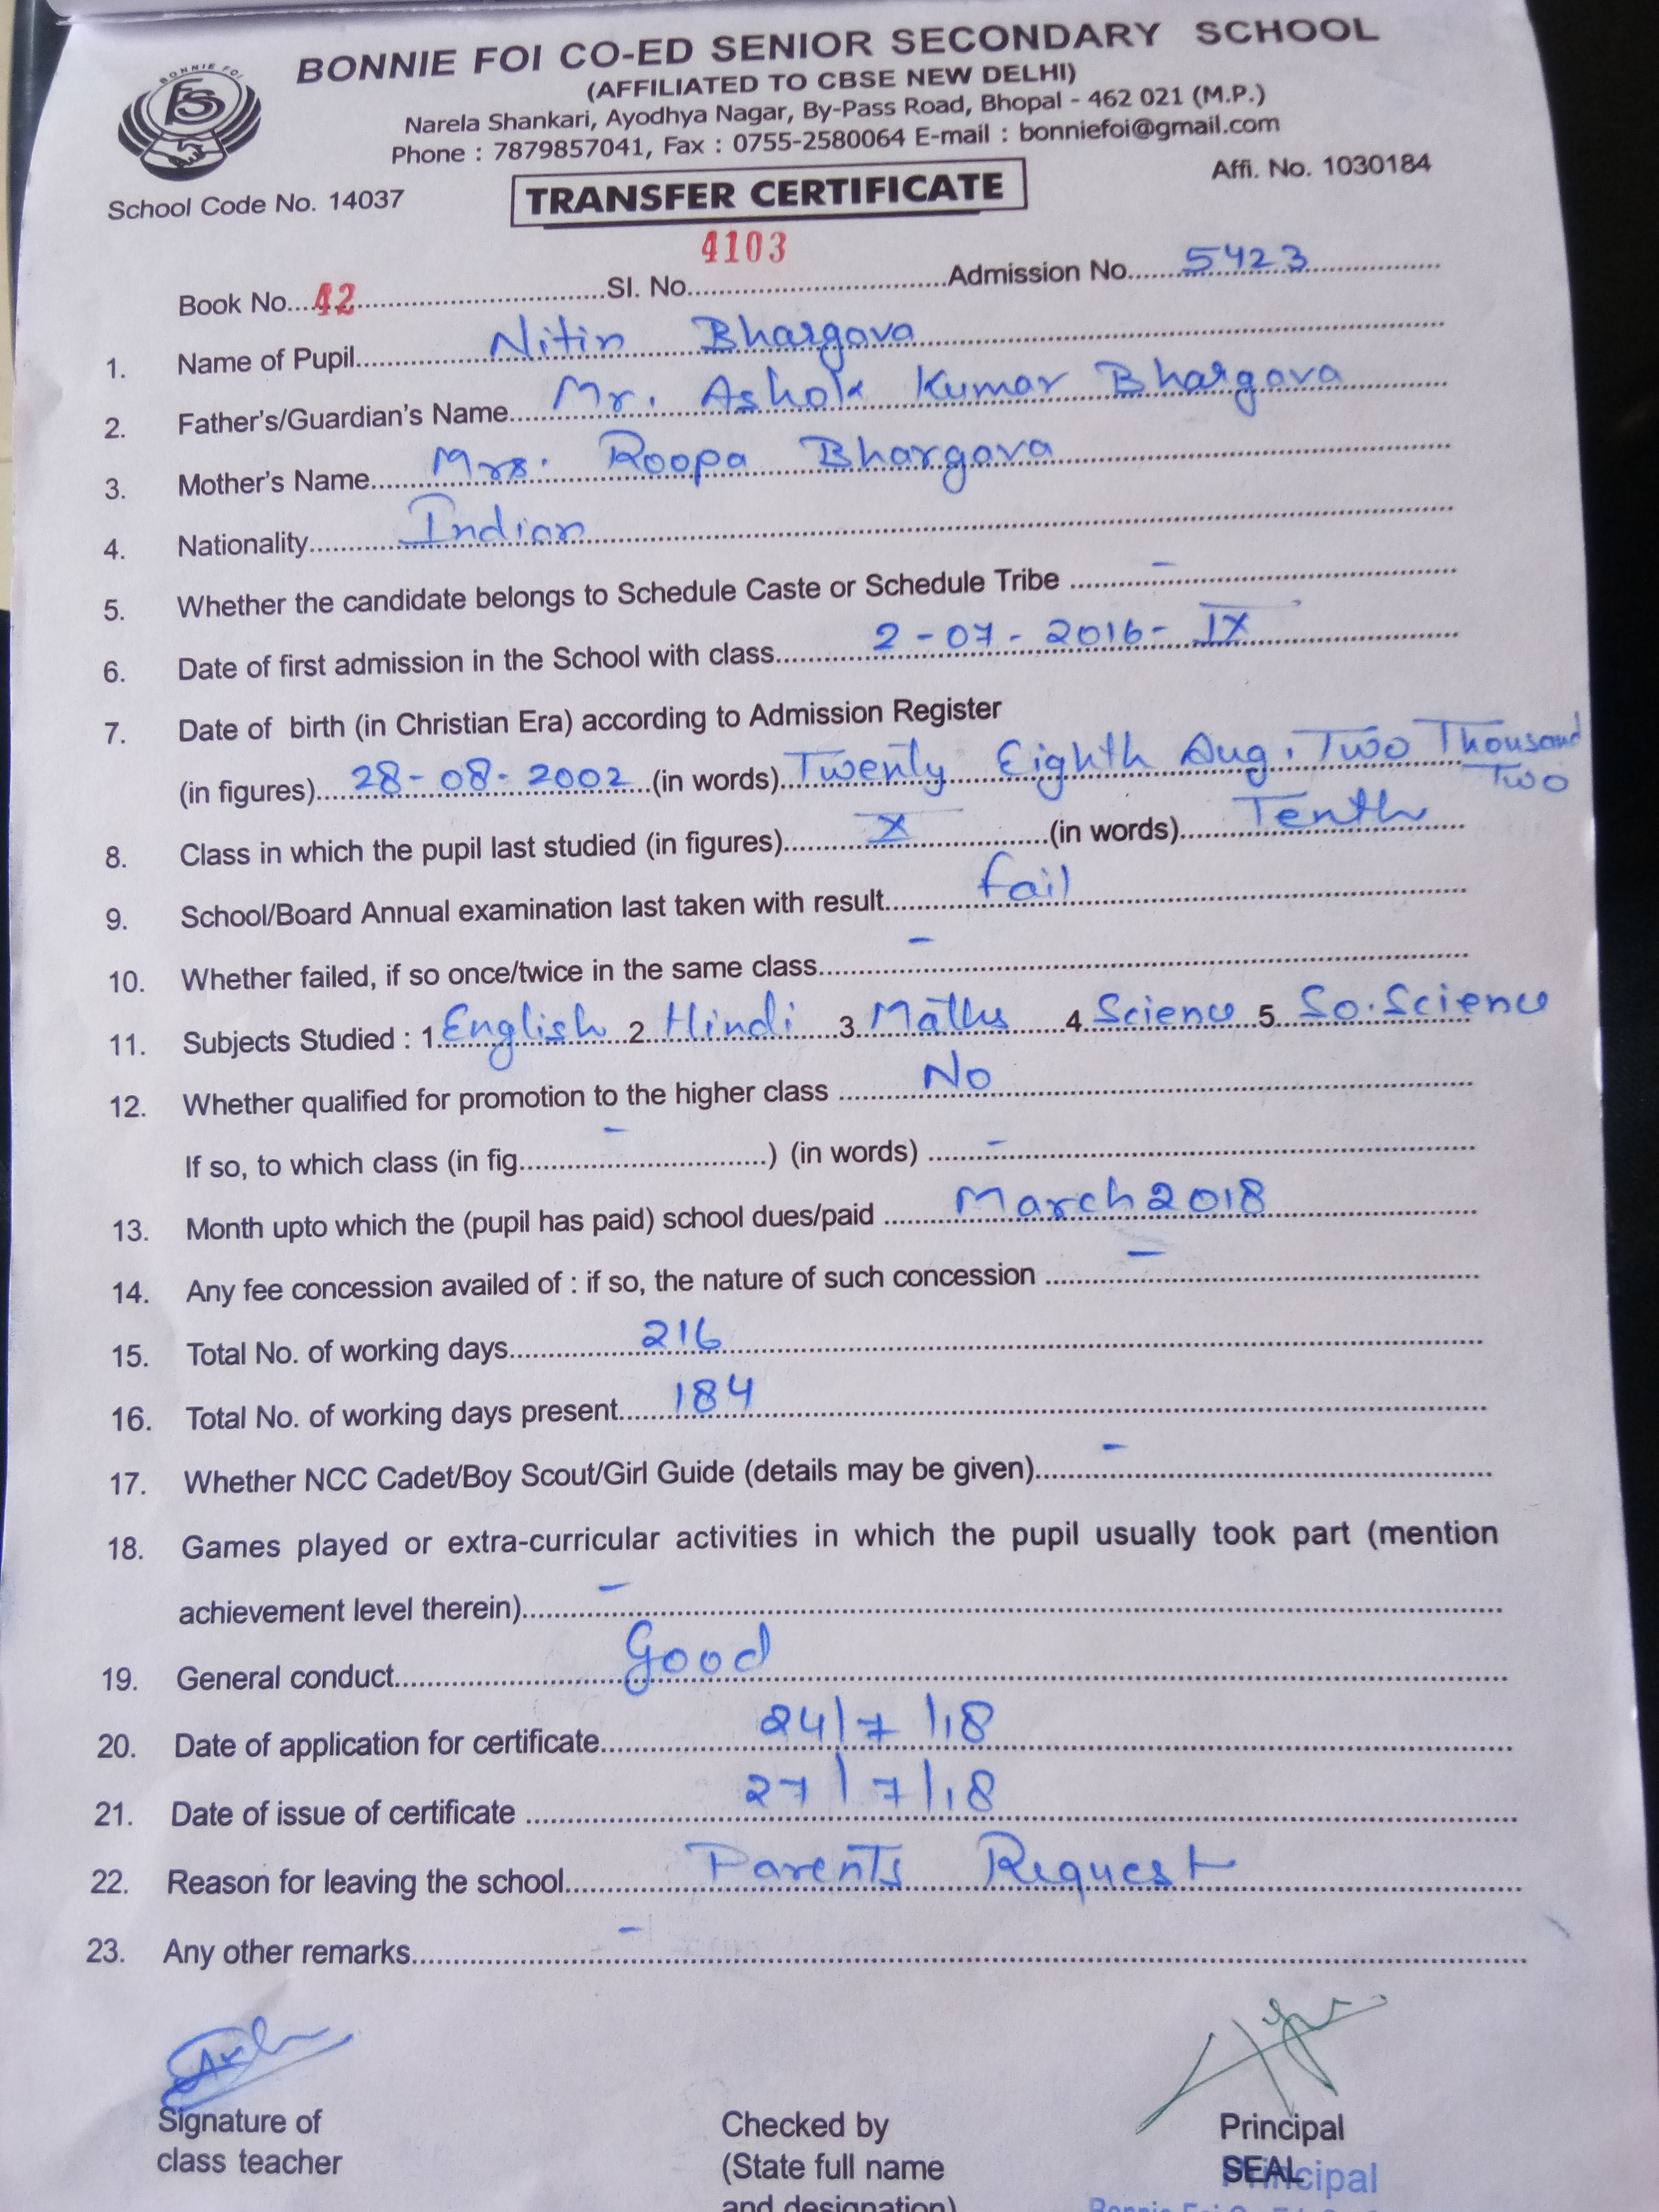 BONNIE FOI
BONNIE FOI CO-ED SENIOR SECONDARY SCHOOL
(AFFILIATED TO CBSE NEW DELHI)
Narela Shankari, Ayodhya Nagar, By-Pass Road, Bhopal - 462 021 (M.P.)
Phone : 7879857041, Fax : 0755-2580064 E-mail : bonniefoi@gmail.com
School Code No. 14037 TRANSFER CERTIFICATE Affi. No. 1030184
Book No. 42 Sl. No. 4103 Admission No. 5423
1. Name of Pupil Nitin Bhargava
2. Father's/Guardian's Name Mr. Ashok Kumar Bhargava
3. Mother's Name Mrs. Roopa Bhargava
4. Nationality Indian
5. Whether the candidate belongs to Schedule Caste or Schedule Tribe -
6. Date of first admission in the School with class 2-07-2016- IX
7. Date of birth (in Christian Era) according to Admission Register
(in figures) 28-08-2002 (in words) Twenty Eighth Aug. Two Thousand
Two
8. Class in which the pupil last studied (in figures) X (in words) Tenth
9. School/Board Annual examination last taken with result fail
10. Whether failed, if so once/twice in the same class -
11. Subjects Studied : 1 English 2 Hindi 3 Maths 4 Science 5 So.Science
12. Whether qualified for promotion to the higher class No
If so, to which class (in fig - ) (in words) -
13. Month upto which the (pupil has paid) school dues/paid March 2018
14. Any fee concession availed of : if so, the nature of such concession -
15. Total No. of working days 216
16. Total No. of working days present 184
17. Whether NCC Cadet/Boy Scout/Girl Guide (details may be given) -
18. Games played or extra-curricular activities in which the pupil usually took part (mention
achievement level therein) -
19. General conduct Good
20. Date of application for certificate 24/7/18
21. Date of issue of certificate 27/7/18
22. Reason for leaving the school Parents Request
23. Any other remarks -
Signature of Checked by Principal
class teacher (State full name SEAL Principal
and designation)